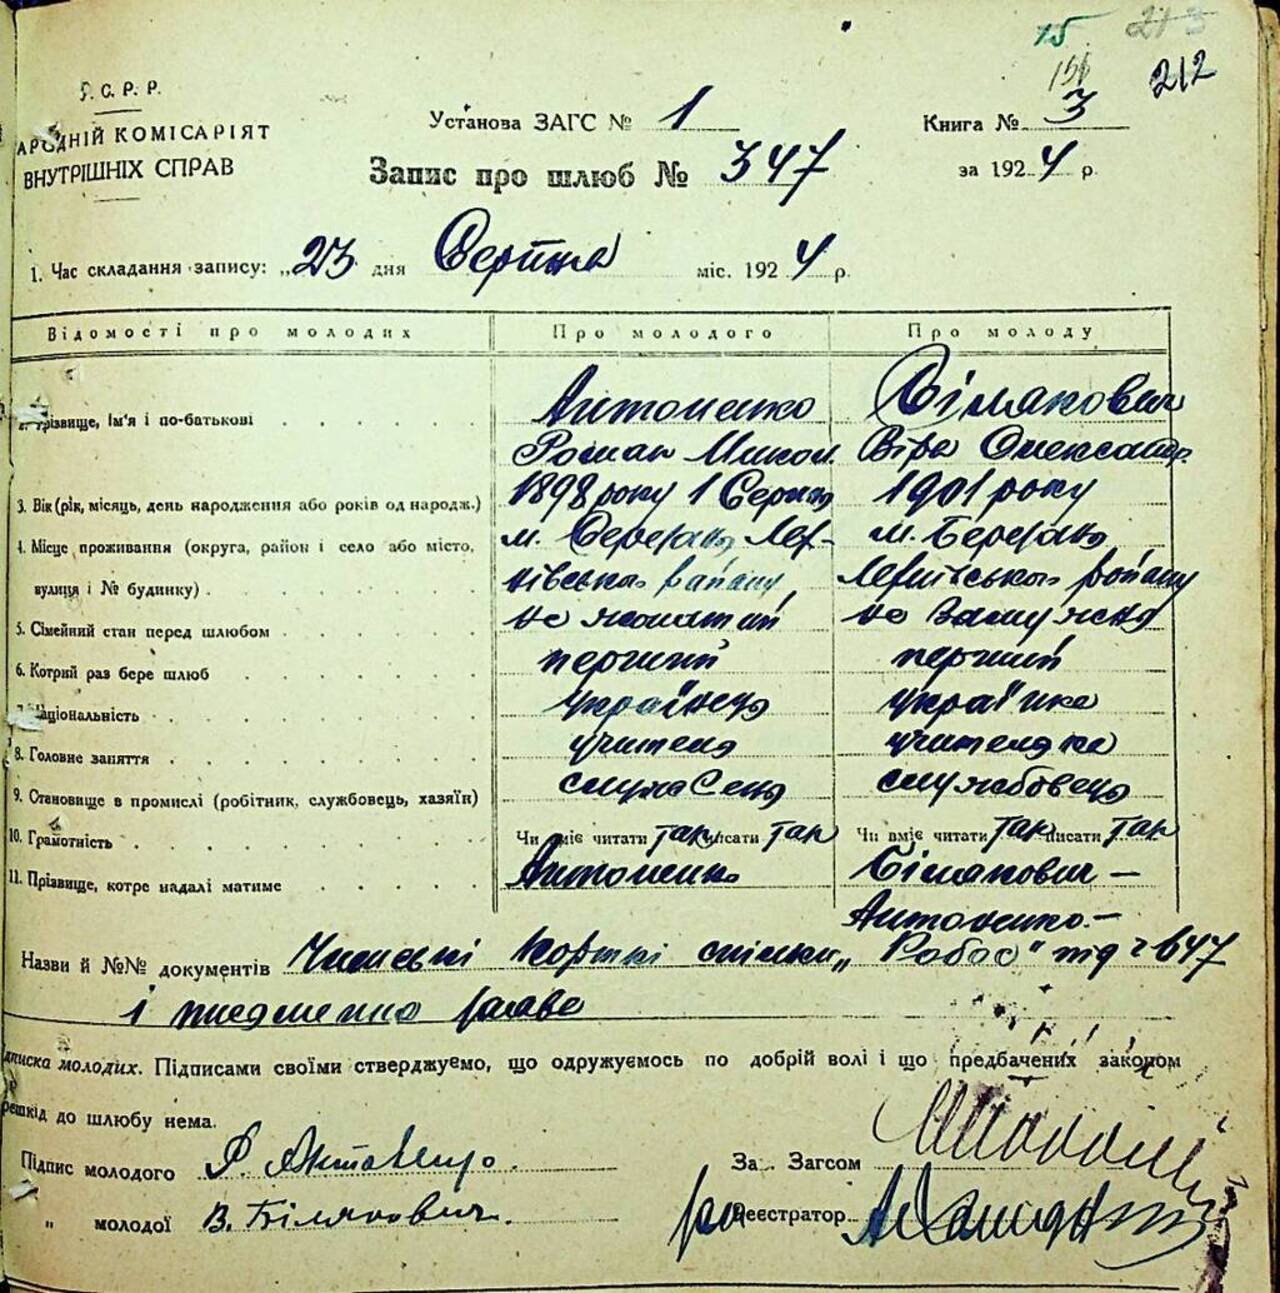 15 213
156 212
У.С.Р.Р.
АРОДНІЙ КОМІСАРІЯТ
ВНУТРІШНІХ СПРАВ
Установа ЗАГС № 1
Книга № 3
Запис про шлюб № 347
за 1924 р.
1. Час складання запису: „23 дня Серпня міс. 1924 р.
Відомості про молодих Про молодого Про молоду
2. Прізвище, ім'я і по-батькові Антоненко Білякович
Роман Микол. Віра Олександр.
3. Вік (рік, місяць, день народження або років од народж.) 1898 року 1 Серпня 1901 року
4. Місце проживання (округа, район і село або місто, м. м. Березань
вулиця і № будинку) району району
5. Сімейний стан перед шлюбом не жонатий не замужня
6. Котрий раз бере шлюб перший перший
7. Національність українець українка
8. Головне заняття учитель учителька
9. Становище в промислі (робітник, службовець, хазяїн) службовець
10. Грамотність Чи вміє читати так писати так Чи вміє читати так писати так
11. Прізвище, котре надалі матиме Антоненко Білякович –
Антоненко –
Назви й №№ документів Членські спілки „Робос"
і
дписка молодих. Підписами своїми стверджуємо, що одружуємось по добрій волі і що предбачених законом
решкід до шлюбу нема.
Підпис молодого Р. Антоненко
За . Загсом
„ молодої В. Білякович
Реєстратор